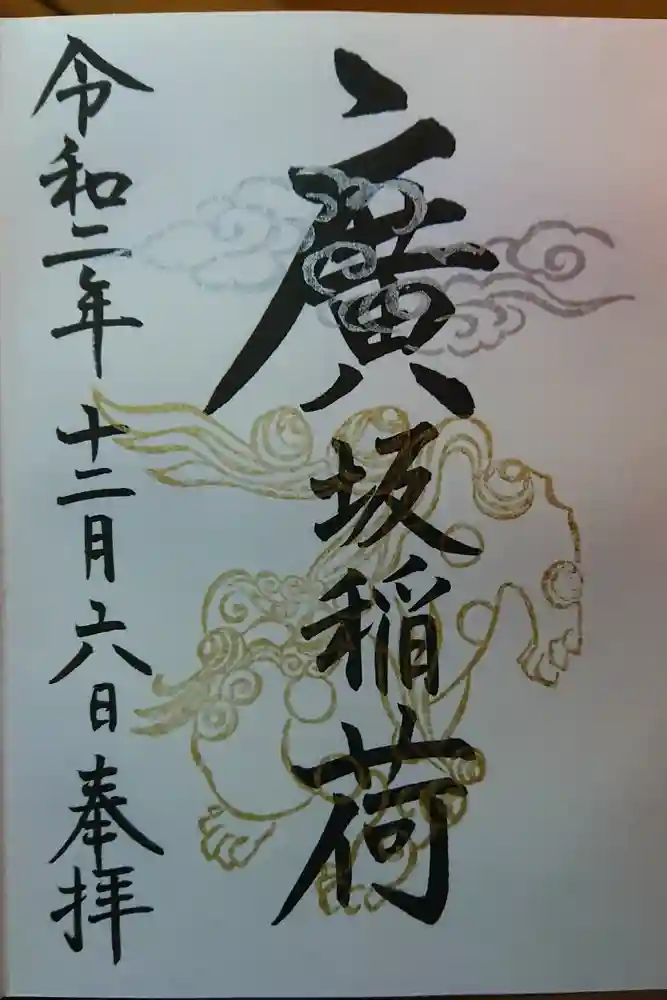 廣坂稲荷
令和二年十二月十六日奉拝